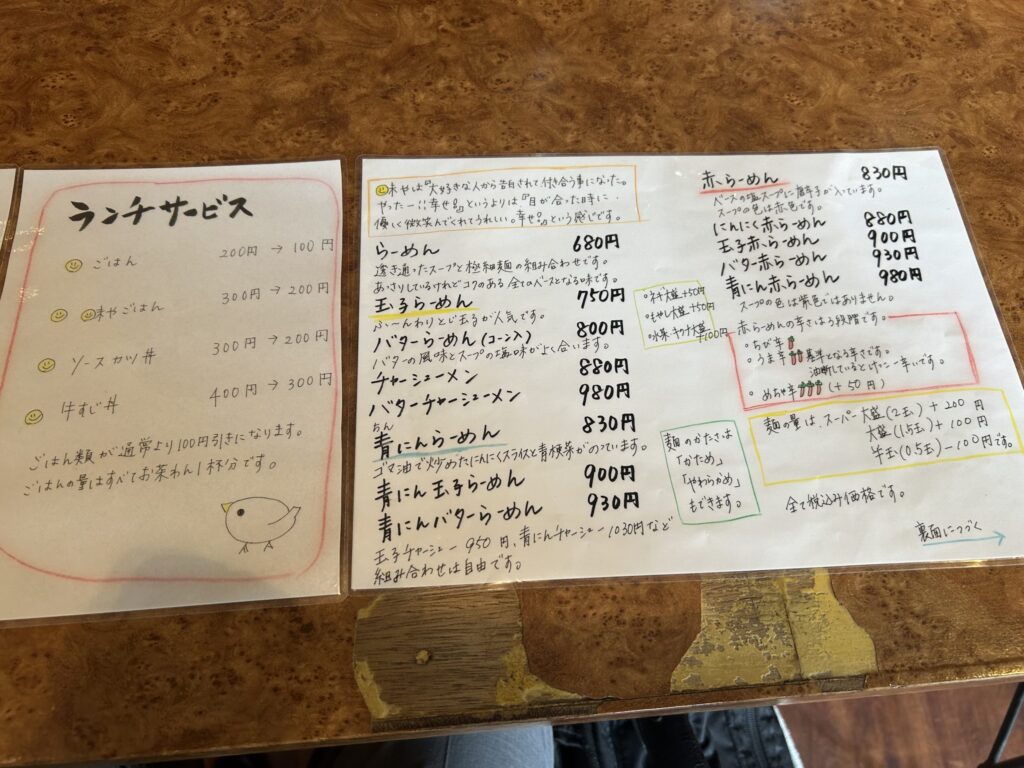 ランチサービス
ごはん 200円 → 100円
味やごはん 300円 → 200円
ソースカツ丼 300円 → 200円
牛すじ丼 400円 → 300円
ごはん類が通常より100円引きになります。
ごはんの量はすべてお茶わん1杯分です。
味やは『大好きな人から告白されて付き合う事になった。
やったー!!幸せ!』というよりは『目が合った時に
優しく微笑んでくれてうれしい。幸せ!』という感じです。
らーめん 680円
透き通ったスープと極細麺の組み合わせです。
あっさりしているけれどコクのある全てのベースとなる味です。
玉子らーめん 750円
ふーんわりとじ玉子が人気です。
バターらーめん(コーン入) 800円
バターの風味とスープの塩味がよく合います。
チャーシューメン 880円
バターチャーシューメン 980円
青にんらーめん 830円
ゴマ油で炒めたにんにくスライスと青梗菜がのっています。
青にん玉子らーめん 900円
青にんバターらーめん 930円
玉子チャーシュー950円、青にんチャーシュー1030円など
組み合わせは自由です。
・ネギ大盛+50円
・もやし大盛+50円
・水菜・キクラゲ大盛+100円
麺のかたさは
「かため」
「やわらかめ」
もできます。
赤らーめん 830円
ベースの塩スープに唐辛子が入っています。
スープの色は赤色です。
にんにく赤らーめん 880円
玉子赤らーめん 900円
バター赤らーめん 930円
青にん赤らーめん 980円
スープの色は紫色ではありません。
赤らーめんの辛さは3段階です。
・ちび辛
・うま辛 基準となる辛さです。
油断しているとけっこー辛いです。
・めちゃ辛 (+50円)
麺の量は、スーパー大盛(2玉)+200円
大盛(1.5玉)+100円
半玉(0.5玉)-100円です。
全て税込み価格です。
裏面につづく